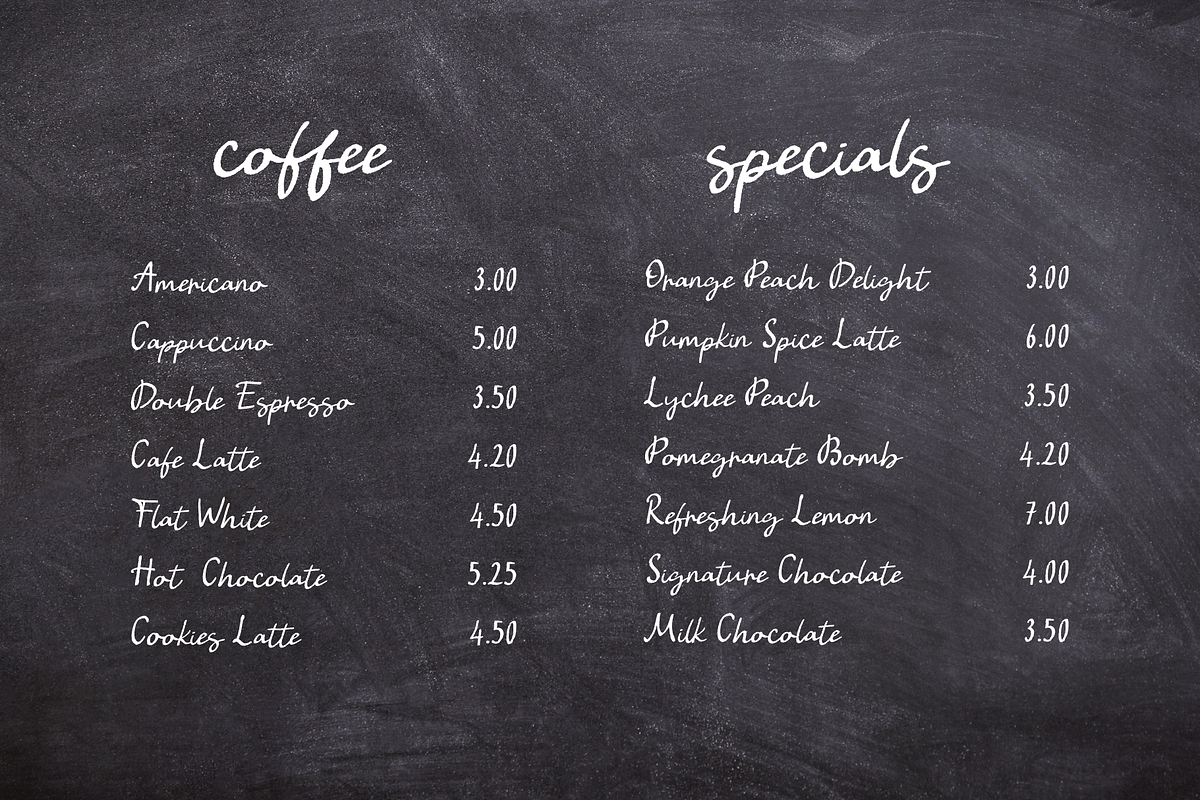 coffee
Americano 3.00
Cappuccino 5.00
Double Espresso 3.50
Cafe Latte 4.20
Flat White 4.50
Hot Chocolate 5.25
Cookies Latte 4.50
specials
Orange Peach Delight 3.00
Pumpkin Spice Latte 6.00
Lychee Peach 3.50
Pomegranate Bomb 4.20
Refreshing Lemon 7.00
Signature Chocolate 4.00
Milk Chocolate 3.50